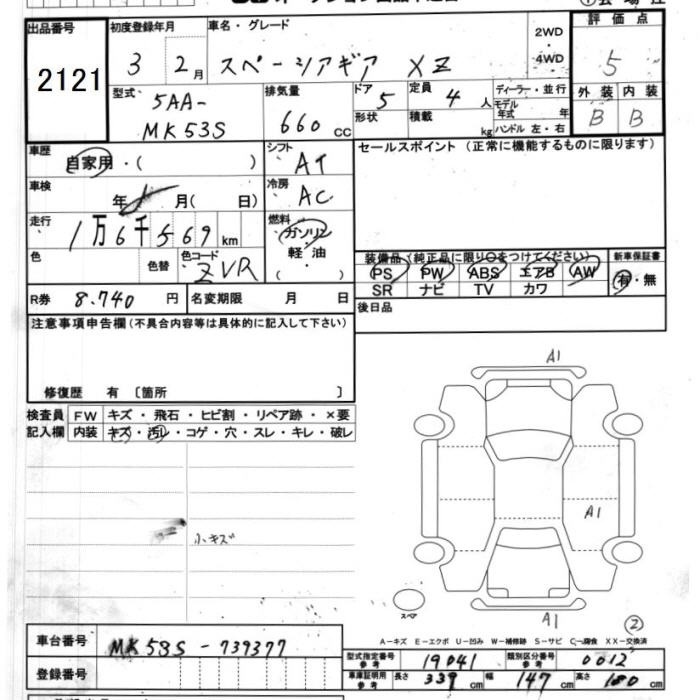 出品番号
2121
初度登録年月
3 2月
車名・グレード
スペーシアギア XZ
2WD
4WD
評価点
5
外装 内装
B B
型式
5AA-
MK53S
排気量
660 CC
ドア
5
定員
4 人
形状
積載
kg
ディーラー・並行
モデル
年式 年
ハンドル 左・右
車歴
自家用・( )
シフト
AT
車検
年 月( 日)
冷房
AC
走行
1万6千569 km
燃料
ガソリン
軽・油
( )
色
色替
色コード
ZVR
R券 8.740 円
名変期限 月 日
セールスポイント (正常に機能するものに限ります)
装備品 (純正品に限り○をつけてください)
PS PW ABS エアB AW
SR ナビ TV カワ
新車保証書
有・無
後日品
注意事項申告欄 (不具合内容等は具体的に記入して下さい)
修復歴 有 〔箇所 〕
検査員
記入欄
FW キズ・飛石・ヒビ割・リペア跡・×要
内装 キズ・汚レ・コゲ・穴・スレ・キレ・破レ
小キズ
A1
A1
A1
スペア
②
A-キズ E-エクボ U-凹み W-補修跡 S-サビ C-腐食 XX-交換済
車台番号
MK53S-739377
登録番号
型式指定番号
参考
19041
類別区分番号
参考
0012
車庫証明用
参考
長さ 339 cm 幅 147 cm 高さ 180 cm